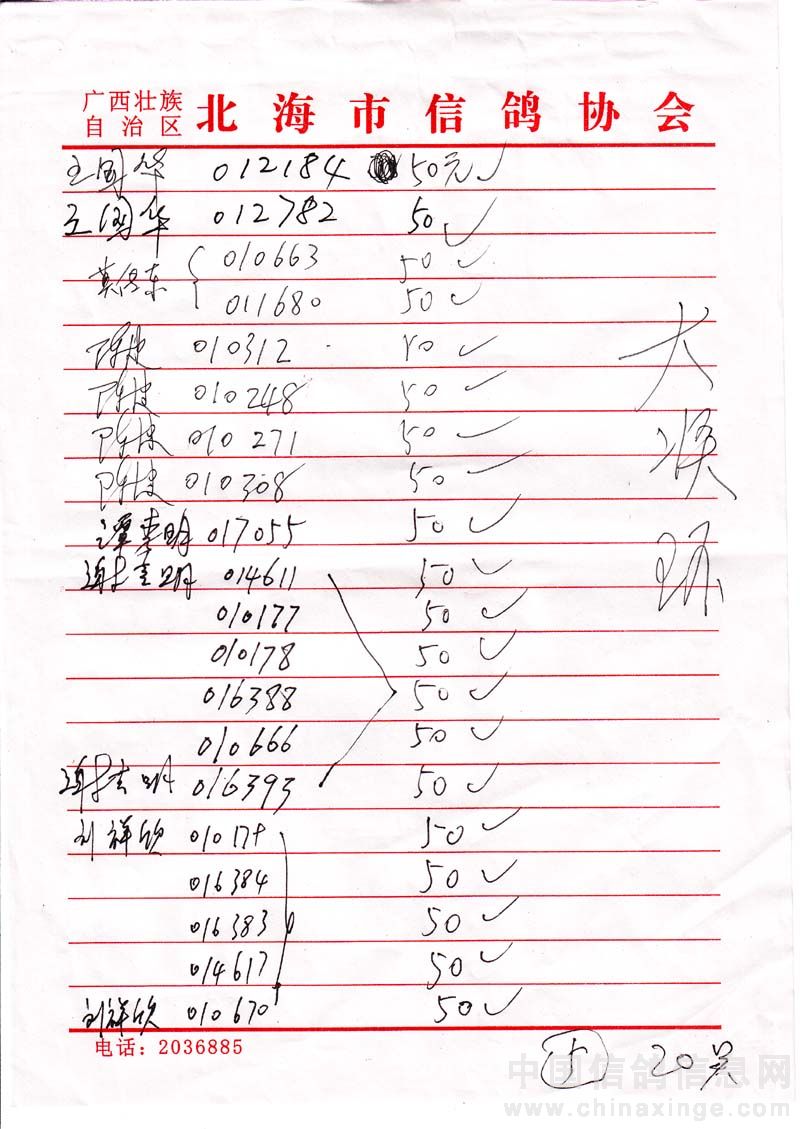 广西壮族
自治区
北海市信鸽协会
王国华 012184 50元✓
王国华 012782 50 ✓
010663 50 ✓
011680 50 ✓
陈皮 010312 50 ✓
陈皮 010248 50 ✓
陈皮 010271 50 ✓
陈皮 010308 50 ✓
017055 50 ✓
014611 50 ✓
010177 50 ✓
010178 50 ✓
016388 50 ✓
010666 50 ✓
016393 50 ✓
刘祥欣 50 ✓
016384 50 ✓
016383 50
014617 50 ✓
刘祥欣 010670 50 ✓
大
电话：2036885
20
中国信鸽信息网
www.chinaxinge.com